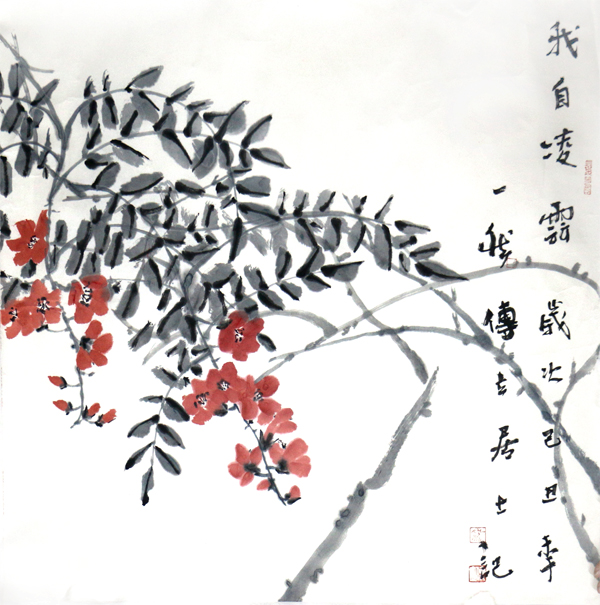 我自凌霄歲次己丑年
一傳居士記